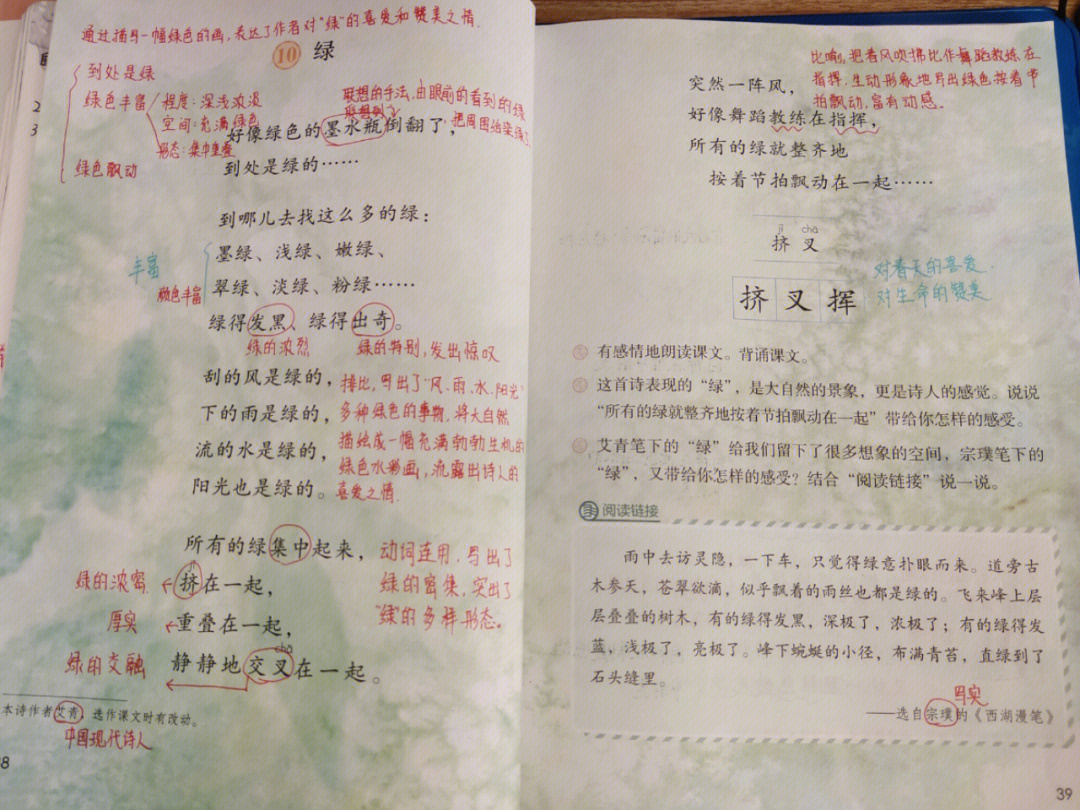 通过描写一幅绿色的画,表达了作者对"绿"的喜爱和赞美之情.
10 绿
到处是绿
绿色丰富 程度:深浅浓淡
空间:充满绿色
形态:集中重叠
绿色飘动
联想的手法,由眼前的看到的绿
联想到了
把周围渲染绿了
好像绿色的墨水瓶倒翻了,
到处是绿的……
到哪儿去找这么多的绿:
墨绿、浅绿、嫩绿、
丰富
颜色丰富
翠绿、淡绿、粉绿……
绿得发黑、绿得出奇。
绿的浓烈 绿的特别,发出惊叹
刮的风是绿的,
下的雨是绿的,
流的水是绿的,
阳光也是绿的。
排比,写出了"风、雨、水、阳光"
多种绿色的事物,将大自然
描绘成一幅充满勃勃生机的
绿色水彩画,流露出诗人的
喜爱之情.
所有的绿集中起来,
绿的浓密 挤在一起,
厚实 重叠在一起,
chā
绿的交融 静静地交叉在一起。
动词连用.写出了
绿的密集,突出了
"绿"的多样形态。
本诗作者艾青,选作课文时有改动。
中国现代诗人
8
比喻,把春风吹拂比作舞蹈教练在
指挥.生动形象地写出绿色按着节
拍飘动,富有动感。
突然一阵风,
好像舞蹈教练在指挥,
所有的绿就整齐地
按着节拍飘动在一起……
jǐ chā
挤 叉
对春天的喜爱.
对生命的赞美
挤 叉 挥
有感情地朗读课文。背诵课文。
这首诗表现的“绿”,是大自然的景象,更是诗人的感觉。说说
“所有的绿就整齐地按着节拍飘动在一起”带给你怎样的感受。
艾青笔下的“绿”给我们留下了很多想象的空间,宗璞笔下的
“绿”,又带给你怎样的感受?结合“阅读链接”说一说。
阅读链接
雨中去访灵隐,一下车,只觉得绿意扑眼而来。道旁古
木参天,苍翠欲滴,似乎飘着的雨丝也都是绿的。飞来峰上层
层叠叠的树木,有的绿得发黑,深极了,浓极了;有的绿得发
蓝,浅极了,亮极了。峰下蜿蜒的小径,布满青苔,直绿到了
石头缝里。
写实
——选自宗璞的《西湖漫笔》
39